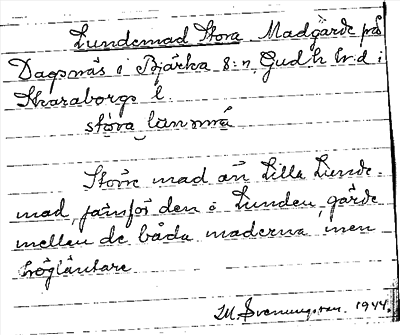 Lundemad Stora Madgärde på
Dagsnäs i Bjärka s:n Gudh hr.d i
Skaraborgs l.
stora lunnma
Större mad än Lilla Lunde-
mad, jämför den o Lunden, gärde
mellan de båda maderna men
högläntare
M Svenungsson. 1944.